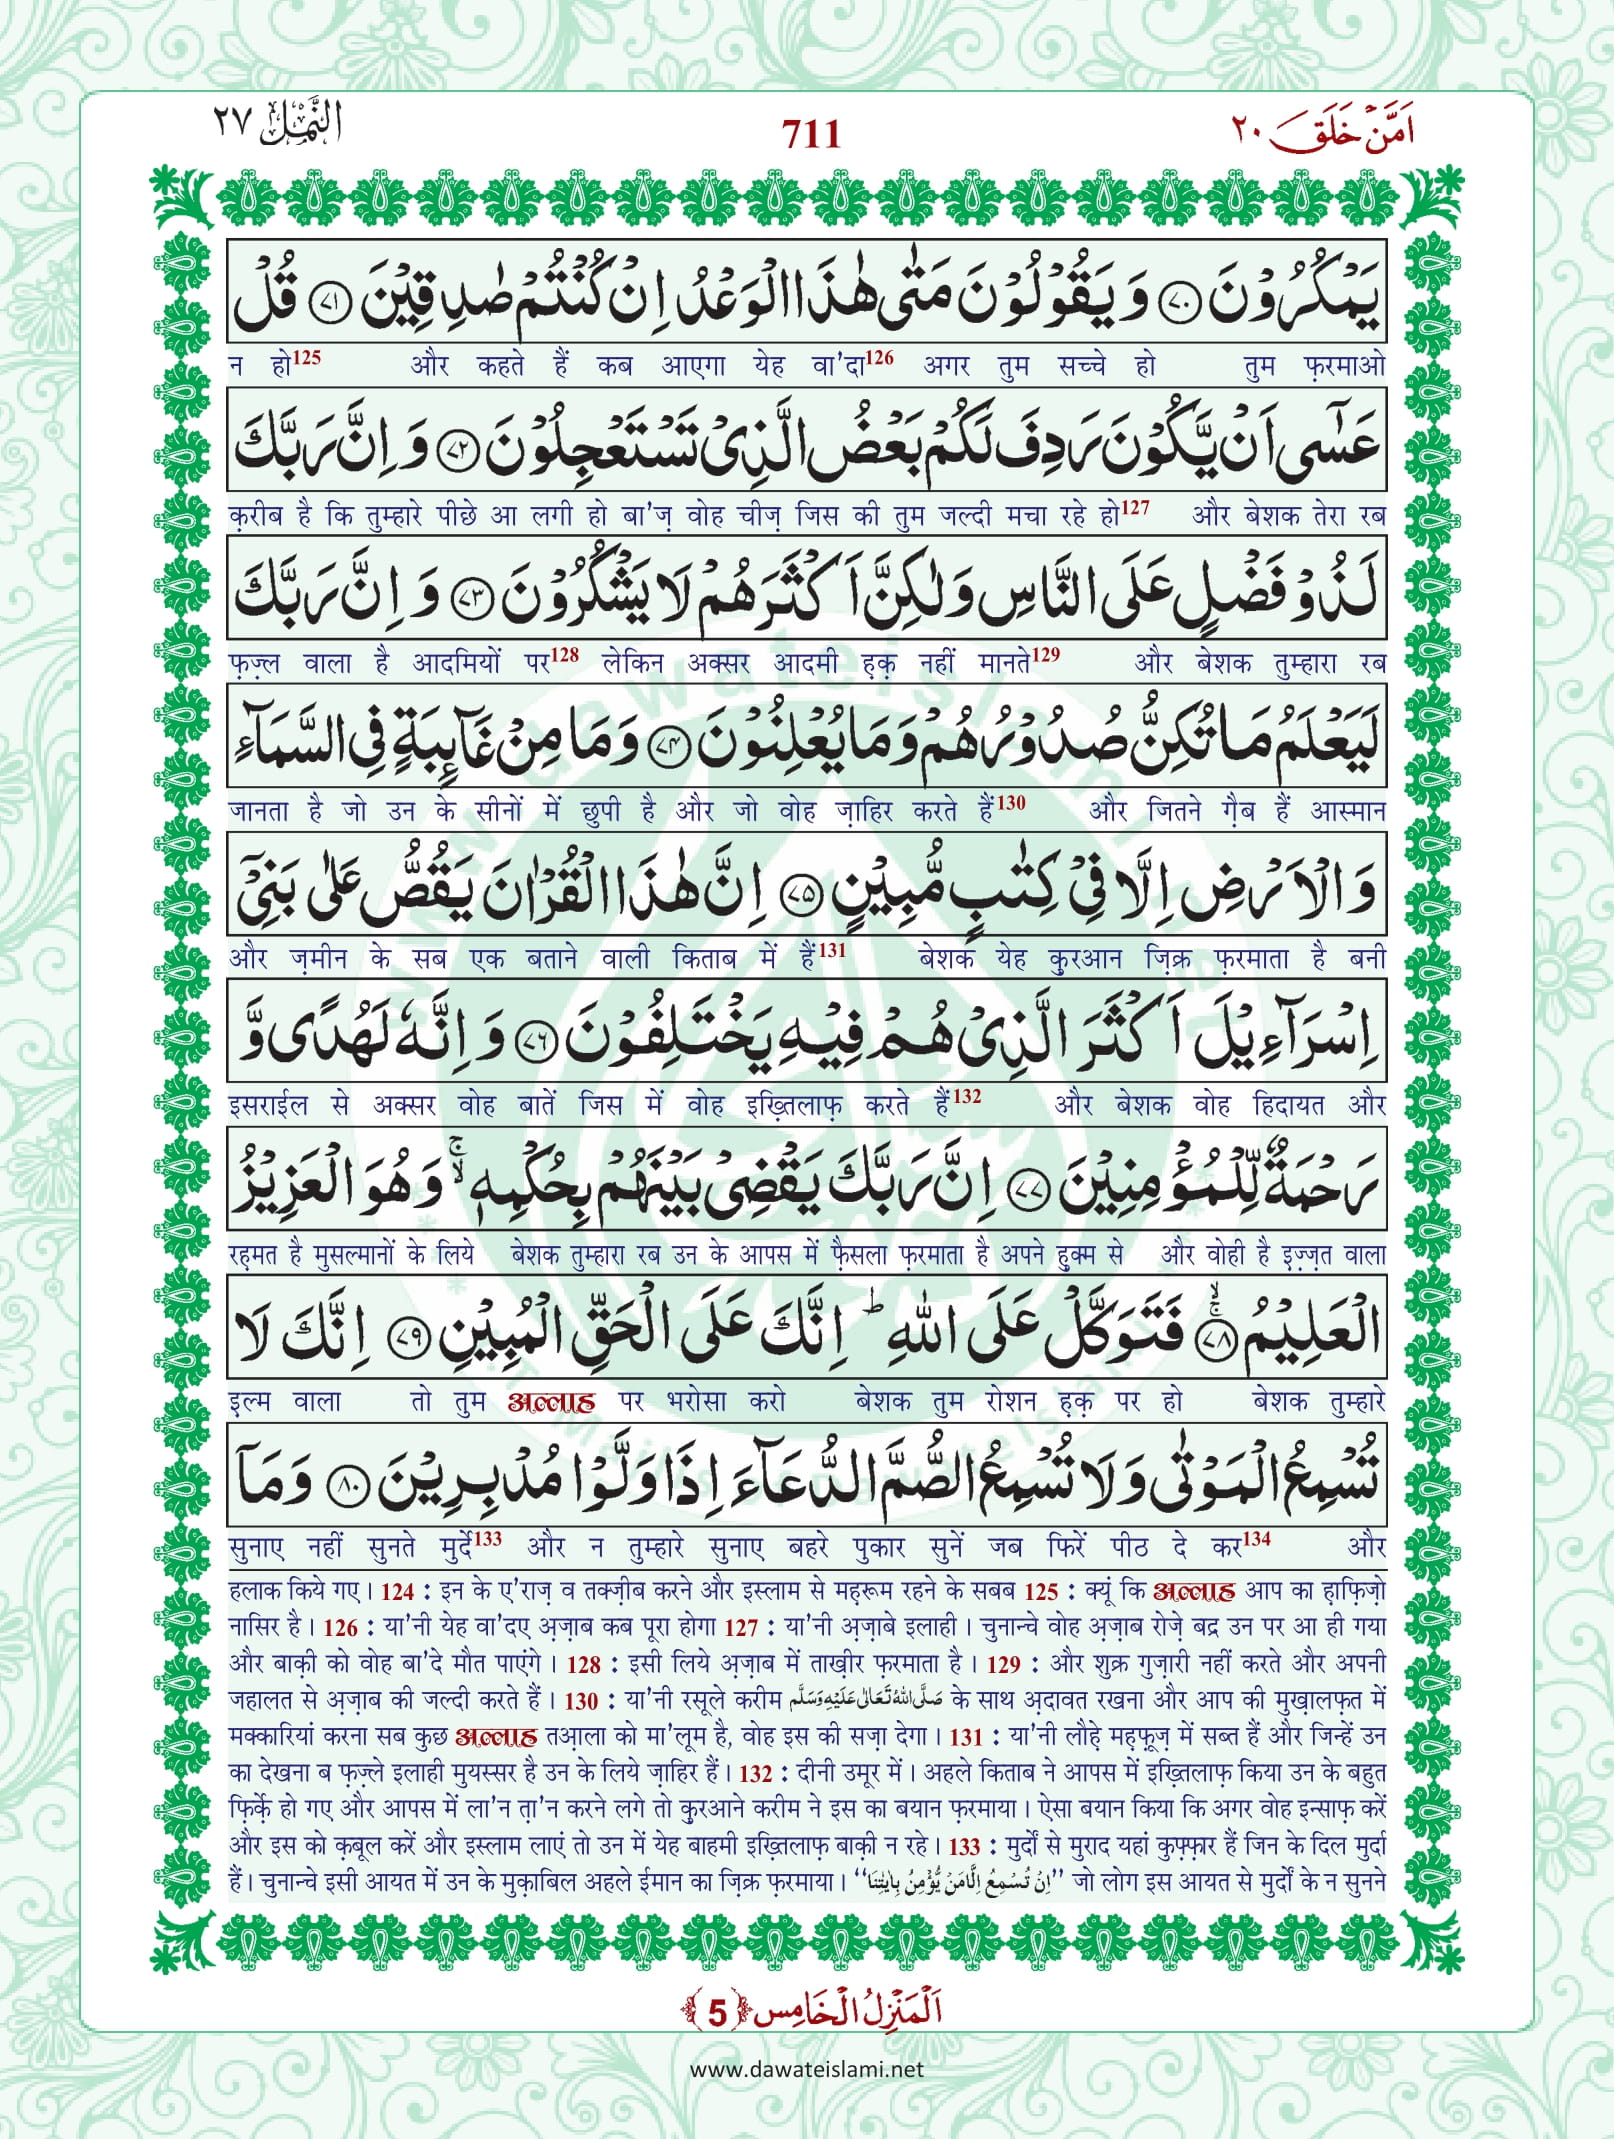 اَمَّنْ خَلَقَ ٢٠
711
النَّمْل ٢٧
يَمْكُرُوْنَ ﴿۷۰﴾ وَ يَقُوْلُوْنَ مَتٰى هٰذَا الْوَعْدُ اِنْ كُنْتُمْ صٰدِقِيْنَ ﴿۷۱﴾ قُلْ
न हो125 और कहते हैं कब आएगा येह वा'दा126 अगर तुम सच्चे हो तुम फ़रमाओ
عَسٰۤى اَنْ يَّكُوْنَ رَدِفَ لَكُمْ بَعْضُ الَّذِىْ تَسْتَعْجِلُوْنَ ﴿۷۲﴾ وَ اِنَّ رَبَّكَ
क़रीब है कि तुम्हारे पीछे आ लगी हो बा'ज़ वोह चीज़ जिस की तुम जल्दी मचा रहे हो127 और बेशक तेरा रब
لَذُوْ فَضْلٍ عَلَى النَّاسِ وَلٰكِنَّ اَكْثَرَهُمْ لَا يَشْكُرُوْنَ ﴿۷۳﴾ وَ اِنَّ رَبَّكَ
फ़ज़्ल वाला है आदमियों पर128 लेकिन अक्सर आदमी ह़क़ नहीं मानते129 और बेशक तुम्हारा रब
لَيَعْلَمُ مَا تُكِنُّ صُدُوْرُهُمْ وَمَا يُعْلِنُوْنَ ﴿۷۴﴾ وَمَا مِنْ غَآىِٕبَةٍ فِى السَّمَآءِ
जानता है जो उन के सीनों में छुपी है और जो वोह ज़ाहिर करते हैं130 और जितने ग़ैब हैं आस्मान
وَالْاَرْضِ اِلَّا فِىْ كِتٰبٍ مُّبِيْنٍ ﴿۷۵﴾ اِنَّ هٰذَا الْقُرْاٰنَ يَقُصُّ عَلٰى بَنِىْۤ
और ज़मीन के सब एक बताने वाली किताब में हैं131 बेशक येह क़ुरआन ज़िक्र फ़रमाता है बनी
اِسْرَآءِيْلَ اَكْثَرَ الَّذِىْ هُمْ فِيْهِ يَخْتَلِفُوْنَ ﴿۷۶﴾ وَ اِنَّهٗ لَهُدًى وَّ
इसराईल से अक्सर वोह बातें जिस में वोह इख़्तिलाफ़ करते हैं132 और बेशक वोह हिदायत और
رَحْمَةٌ لِّلْمُؤْمِنِيْنَ ﴿۷۷﴾ اِنَّ رَبَّكَ يَقْضِىْ بَيْنَهُمْ بِحُكْمِهٖ ۚ وَهُوَ الْعَزِيْزُ
रह़मत है मुसल्मानों के लिये बेशक तुम्हारा रब उन के आपस में फ़ैसला फ़रमाता है अपने हुक्म से और वोही है इ़ज़्ज़त वाला
الْعَلِيْمُ ﴿۷۸﴾ فَتَوَكَّلْ عَلَى اللّٰهِ ؕ اِنَّكَ عَلَى الْحَقِّ الْمُبِيْنِ ﴿۷۹﴾ اِنَّكَ لَا
इल्म वाला तो तुम अल्लाह पर भरोसा करो बेशक तुम रोशन ह़क़ पर हो बेशक तुम्हारे
تُسْمِعُ الْمَوْتٰى وَلَا تُسْمِعُ الصُّمَّ الدُّعَآءَ اِذَا وَلَّوْا مُدْبِرِيْنَ ﴿۸۰﴾ وَمَاۤ
सुनाए नहीं सुनते मुर्दे133 और न तुम्हारे सुनाए बहरे पुकार सुनें जब फिरें पीठ दे कर134 और
हलाक किये गए। 124 : इन के ए'राज़ व तक्ज़ीब करने और इस्लाम से मह़रूम रहने के सबब 125 : क्यूं कि अल्लाह आप का ह़ाफ़िज़ो
नासिर है। 126 : या'नी येह वा'दए अ़ज़ाब कब पूरा होगा 127 : या'नी अ़ज़ाबे इलाही। चुनान्चे वोह अ़ज़ाब रोज़े बद्र उन पर आ ही गया
और बाक़ी को वोह बा'दे मौत पाएंगे। 128 : इसी लिये अ़ज़ाब में ताख़ीर फ़रमाता है। 129 : और शुक्र गुज़ारी नहीं करते और अपनी
जहालत से अ़ज़ाब की जल्दी करते हैं। 130 : या'नी रसूले करीम صَلَّى اللهُ تَعَالٰى عَلَيْهِ وَسَلَّم के साथ अ़दावत रखना और आप की मुख़ालफ़त में
मक्कारियां करना सब कुछ अल्लाह तआ़ला को मा'लूम है, वोह इस की सज़ा देगा। 131 : या'नी लौह़े मह़फ़ूज़ में सब्त हैं और जिन्हें उन
का देखना ब फ़ज़्ले इलाही मुयस्सर है उन के लिये ज़ाहिर हैं। 132 : दीनी उमूर में। अहले किताब ने आपस में इख़्तिलाफ़ किया उन के बहुत
फ़िर्क़े हो गए और आपस में ला'न त़ा'न करने लगे तो क़ुरआने करीम ने इस का बयान फ़रमाया। ऐसा बयान किया कि अगर वोह इन्साफ़ करें
और इस को क़बूल करें और इस्लाम लाएं तो उन में येह बाहमी इख़्तिलाफ़ बाक़ी न रहे। 133 : मुर्दों से मुराद यहां कुफ़्फ़ार हैं जिन के दिल मुर्दा
हैं। चुनान्चे इसी आयत में उन के मुक़ाबिल अहले ईमान का ज़िक्र फ़रमाया। ‘‘اِنْ تُسْمِعُ اِلَّا مَنْ يُّؤْمِنُ بِاٰيٰتِنَا’’ जो लोग इस आयत से मुर्दों के न सुनने
اَلْمَنْزِلُ الْخَامِس ﴿5﴾
www.dawateislami.net